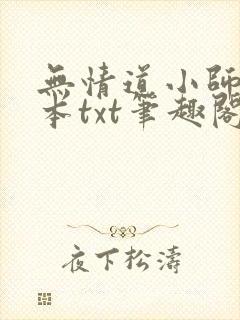 無情道小師
本txt筆趣閣
夜下松濤